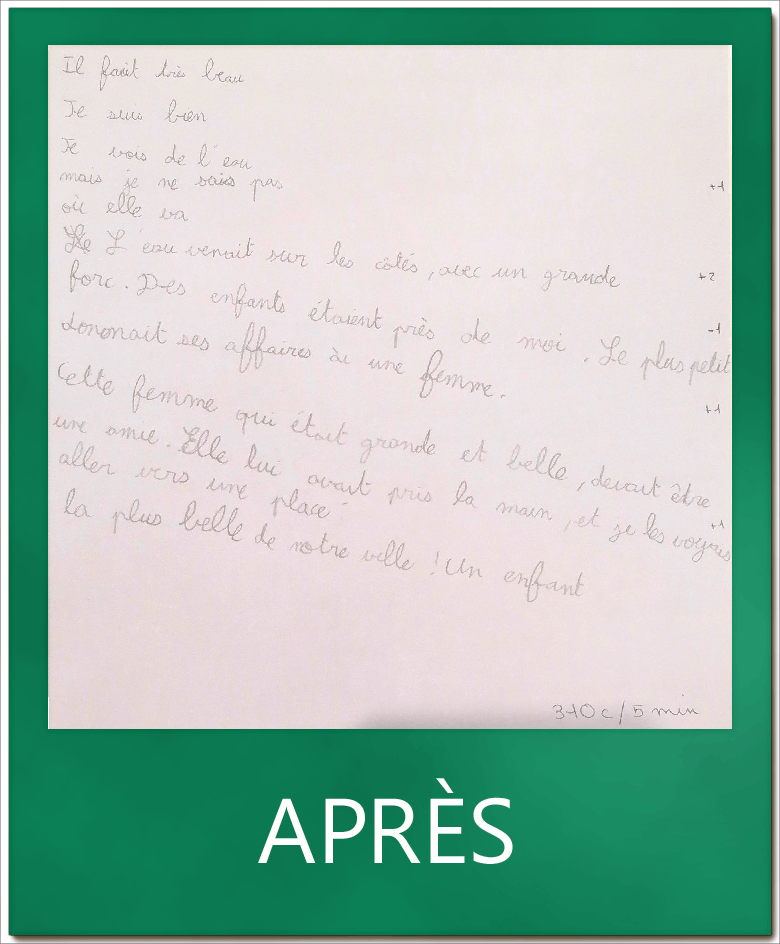 Il fait très beau
Je suis bien
Je vois de l'eau
mais je ne sais pas
+1
où elle va
L'eau venait sur les côtés, avec un grande
+2
forc. Des enfants étaient près de moi. Le plus petit
-1
dononait ses affaires à une femme.
Cette femme qui était grande et belle, devait être
+1
une amie. Elle lui avait pris la main, et je les voyais
+1
aller vers une place
la plus belle de notre ville ! Un enfant
370c / 5 min
APRÈS